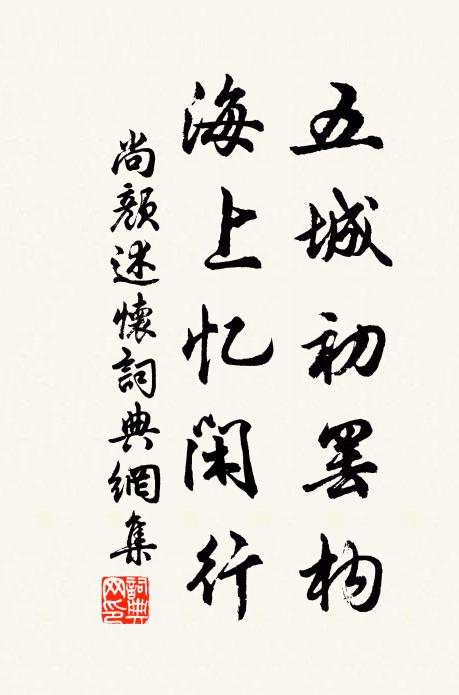 五城初罢构
海上忆闲行
尚颜述懷詞典網集
詞典网印